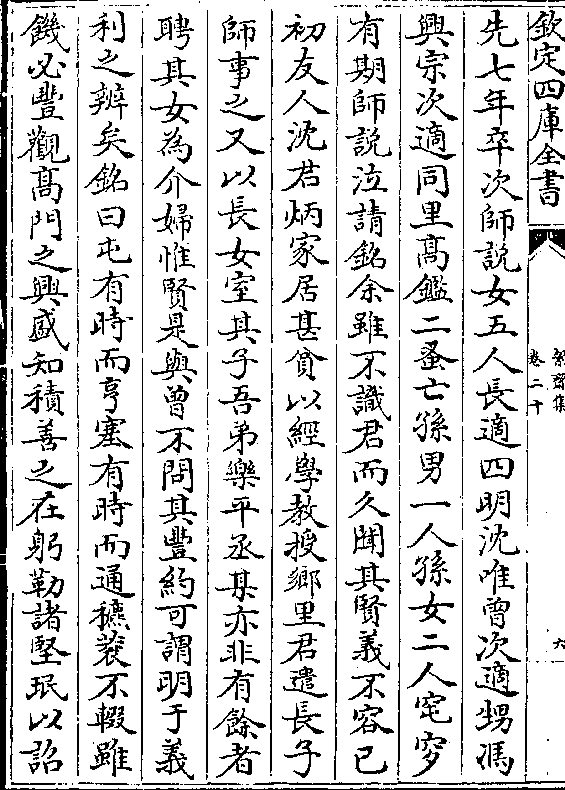 欽定四庫全書
絜齋集
卷二十
六
先七年卒次師說女五人長適四明沈唯曾次適甥馮
興宗次適同里高鑑二蚤亡孫男一人孫女二人窀穸
有期師說泣請銘余雖不識君而久聞其賢義不容已
初友人沈君炳家居甚貧以經學教授鄉里君遣長子
師事之又以長女室其子吾弟樂平丞某亦非有餘者
聘其女為介婦惟賢是與曾不問其豐約可謂明于義
利之辨矣銘曰屯有時而亨塞有時而通穮蓘不輟雖
饑必豐觀高門之興盛知積善之在躬勒諸堅珉以詔